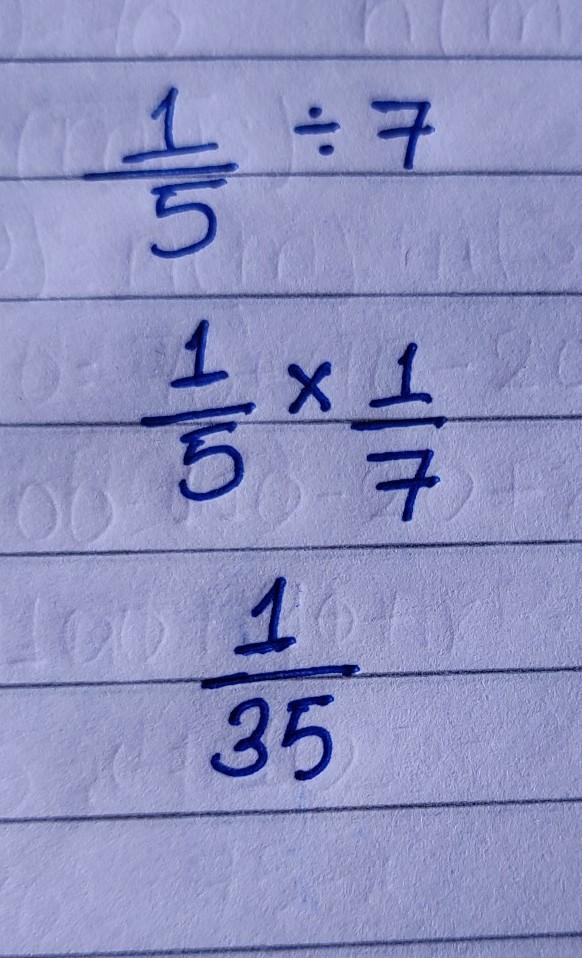 1/5 ÷ 7
1/5 × 1/7
1/35